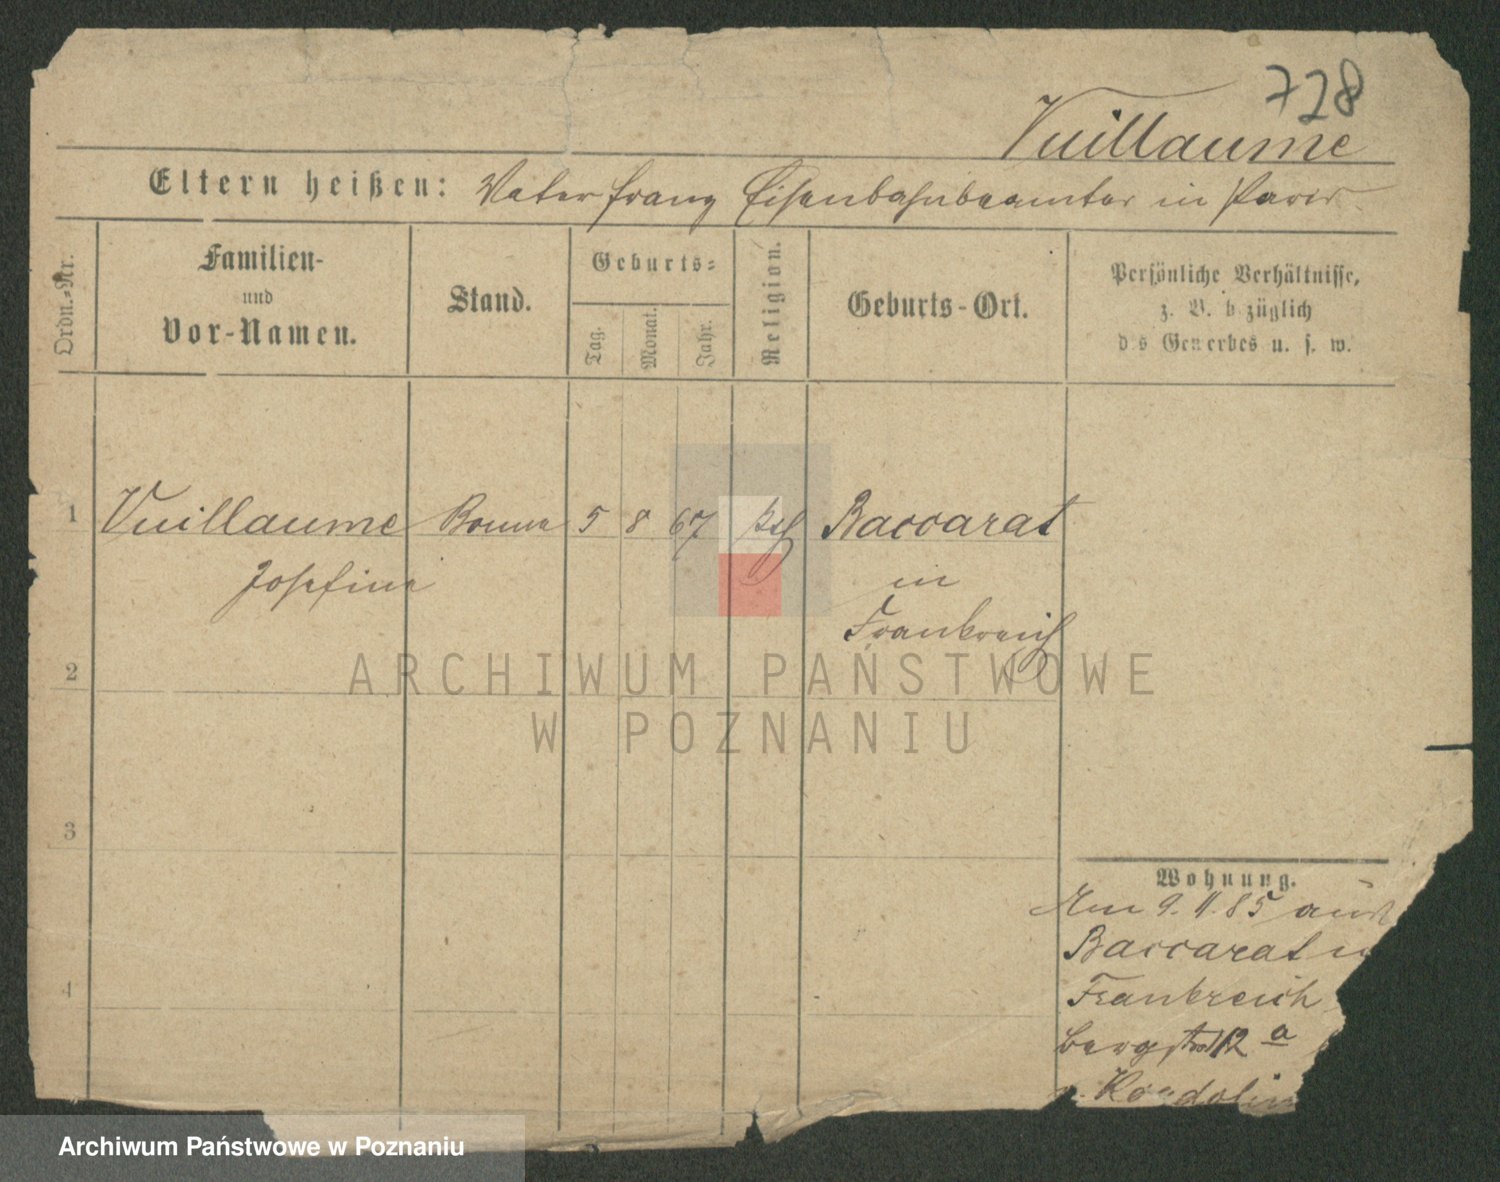 728
Vuillaume
Eltern heißen: Vater Franz Eisenbahnbeamter in Paris
Ordn.-Nr.
Familien-
und
Vor-Namen.
Stand.
Geburts-
Tag.
Monat.
Jahr.
Religion.
Geburts-Ort.
Persönliche Verhältnisse,
z. B. bezüglich
des Gewerbes u. s. w.
1 Vuillaume Bonne 5 8 67 kth Baccarat
Josefine in
Frankreich
2
3
4
Wohnung.
Am 9. 11. 85 aus
Baccarat
Frankreich
Bergstr 12 a
ARCHIWUM PAŃSTWOWE
W POZNANIU
Archiwum Państwowe w Poznaniu